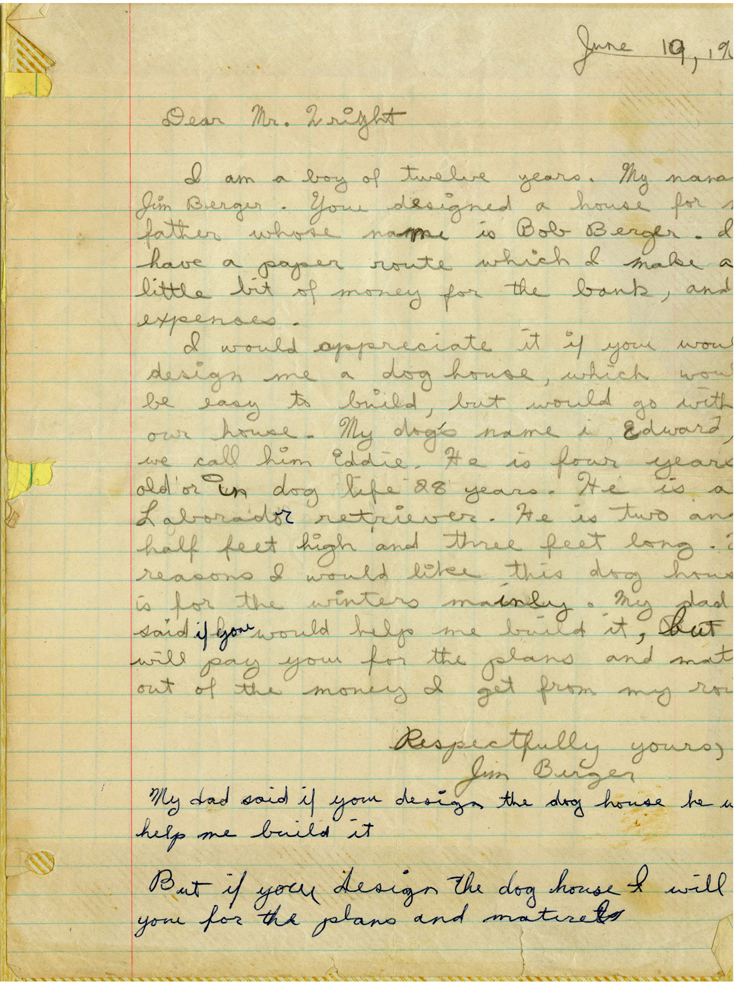 June 19, 19
Dear Mr. Wright
I am a boy of twelve years. My name
Jim Berger. You designed a house for
father whose name is Bob Berger. I
have a paper route which I make a
little bit of money for the bank, and
expenses.
I would appreciate it if you woul
design me a dog house, which woul
be easy to build, but would go with
our house. My dog's name i Edward,
we call him Eddie. He is four years
old or in dog life 28 years. He is a
Laborador retriever. He is two an
half feet high and three feet long.
reasons I would like this dog hous
is for the winters mainly. My dad
said if you would help me build it, but
will pay you for the plans and mat
out of the money I get from my rou
Respectfully yours,
Jim Berger
My dad said if you design the dog house he w
help me build it
But if you design the dog house I will
you for the plans and materels